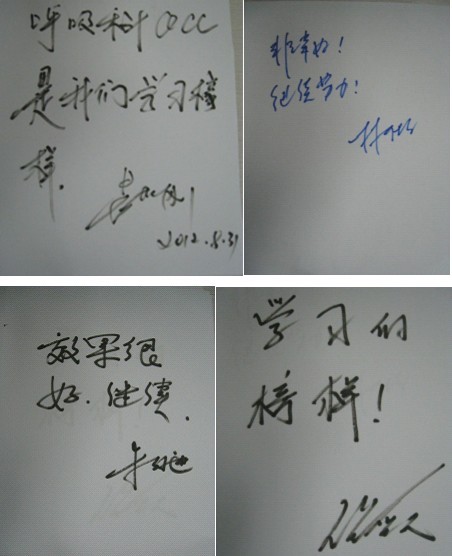 呼吸科QCC
是我们学习榜
样.
2012.8.31
非常好!
继续努力!
效果很
好.继续.
学习的
榜样!